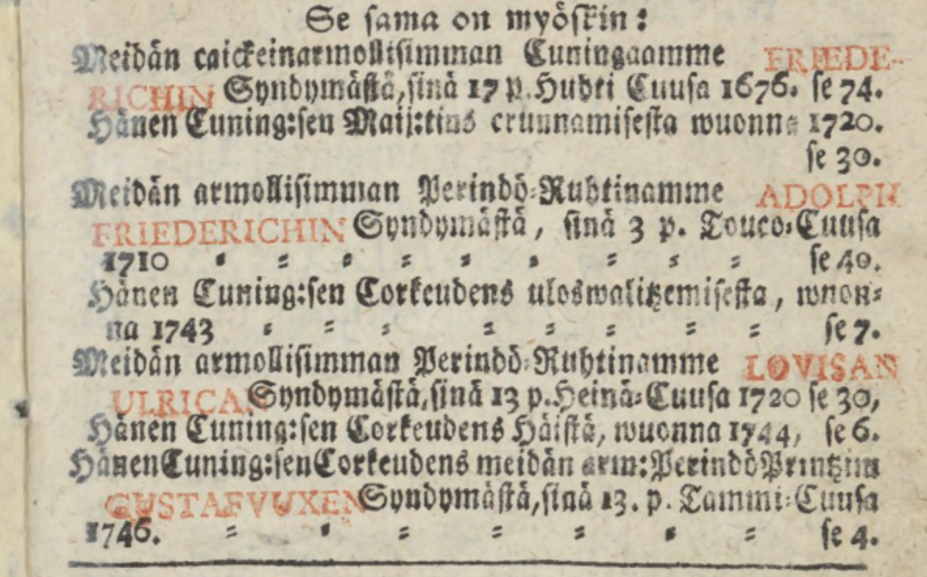 Se sama on myöskin:
Meidän caickeinarmollisimman Cuningaamme FRIEDE-
RICHIN Syndymästä, sinä 17 p. Huhti Cuusa 1676. se 74.
Hänen Cuning:sen Maij:tins cruunamisesta wuonna 1720.
se 30.
Meidän armollisimman Perindö-Ruhtinamme ADOLPH
FRIEDERICHIN Syndymästä, sinä 3 p. Touco-Cuusa
1710 - - - - - - - - - se 40.
Hänen Cuning:sen Corkeudens uloswalitzemisesta, wuon-
na 1743 - - - - - - - - se 7.
Meidän armollisimman Perindö-Ruhtinamme LOVISAN
ULRICAN Syndymästä, sinä 13 p. Heinä-Cuusa 1720 se 30,
Hänen Cuning:sen Corkeudens Häistä, wuonna 1744, se 6.
Hänen Cuning:sen Corkeudens meidän arm: Perindö Printzin
GUSTAFVUXEN Syndymästä, sinä 13. p. Tammi-Cuusa
1746. - - - - - - - se 4.